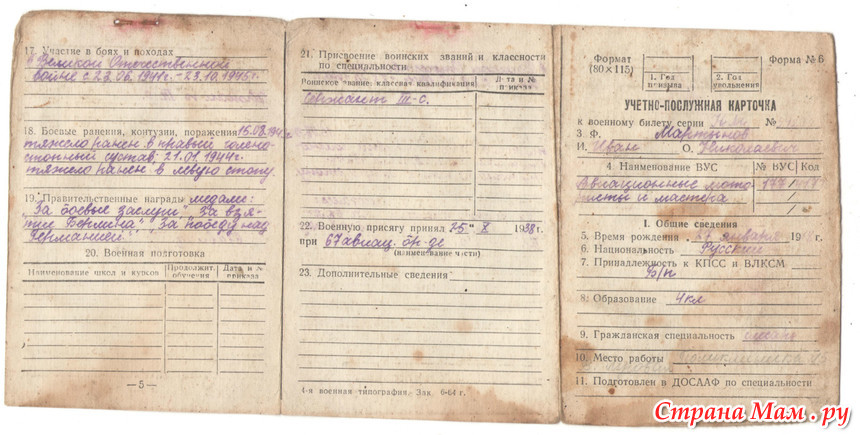 17. Участие в боях и походах
в Великой Отечественной
войне с 23.06.1941г.-23.10.1945г.
18. Боевые ранения, контузии, поражения 15.08.194
тяжело ранен в правый голено-
стопный сустав; 21.01.1944г.
тяжело ранен в левую стопу.
19. Правительственные награды медали:
"За боевые заслуги" "За взя-
тие Берлина", "За победу над
Германией".
20. Военная подготовка
Наименование школ и курсов
Продолжит. обучения
Дата и № приказа
— 5 —
21. Присвоение воинских званий и классности
по специальности
Воинское звание, классная квалификация
Дата и №
приказа
Сержант III-с.
22. Военную присягу принял "25" X 1938 г.
при 67 авиац. бр-де
(наименование части)
23. Дополнительные сведения
4-я военная типография. Зак. 6-64 г.
Формат
(80×115)
Форма № 6
1. Год
призыва
2. Год
увольнения
УЧЕТНО-ПОСЛУЖНАЯ КАРТОЧКА
к военному билету серии №
3. Ф. Мартынов
И. Иван О. Николаевич
4. Наименование ВУС
№ ВУС
Код
Авиационные мото-
ристы и мастера
I. Общие сведения
5. Время рождения января 19 г.
6. Национальность Русский
7. Принадлежность к КПСС и ВЛКСМ
б/п
8. Образование 4кл
9. Гражданская специальность слесарь
10. Место работы
11. Подготовлен в ДОСААФ по специальности
Страна Мам.ру